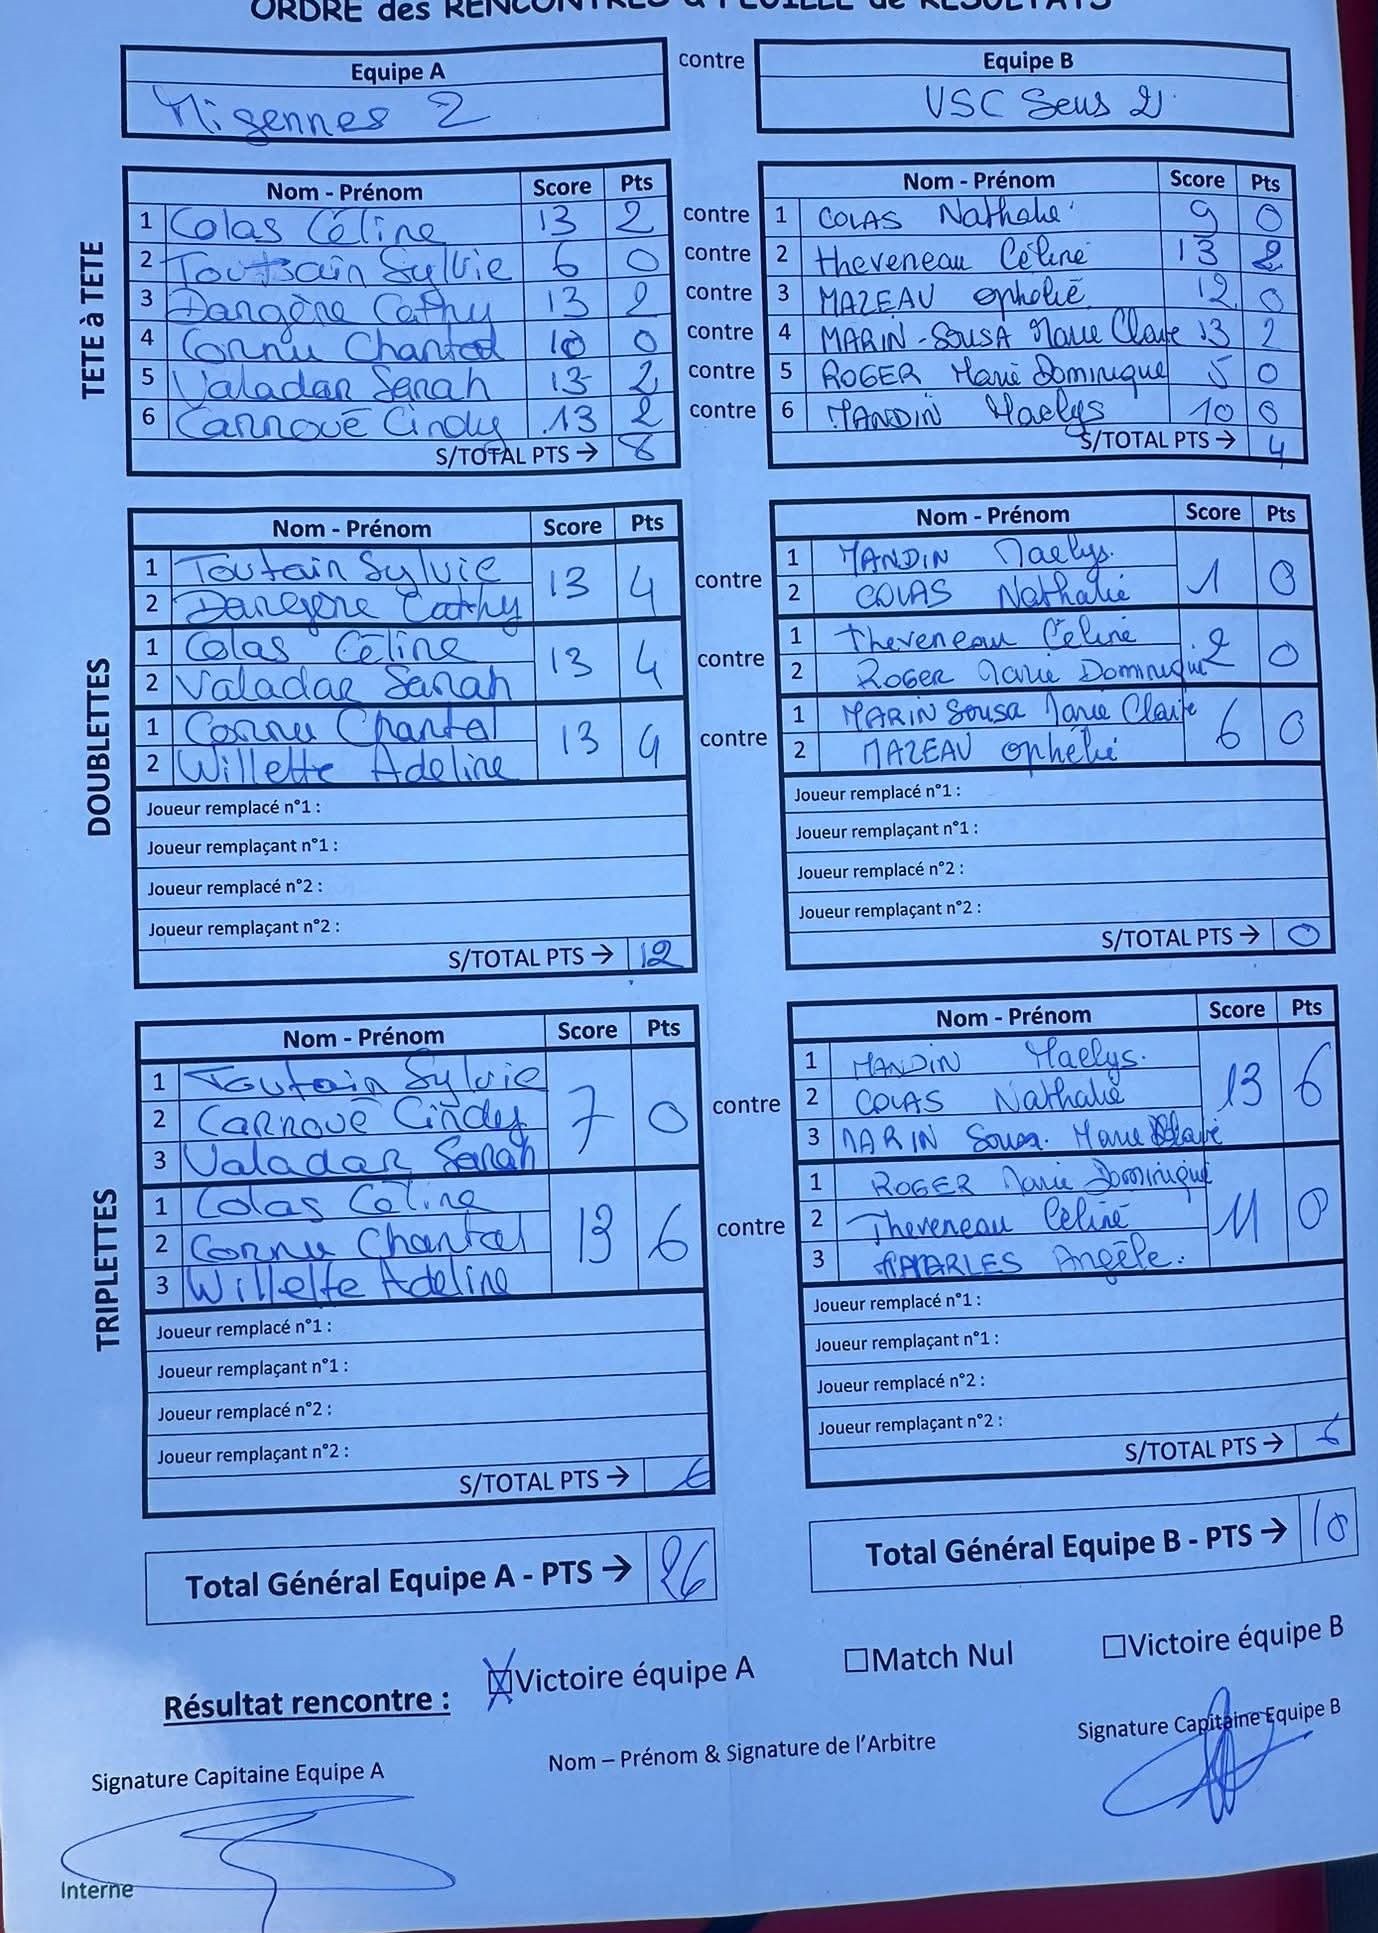 ORDRE des RENCONTRES & FEUILLE de RESULTATS
Equipe A contre Equipe B
Migennes 2 VSC Sens 2
TETE à TETE
Nom - Prénom Score Pts Nom - Prénom Score Pts
1 Colas Céline 13 2 contre 1 COLAS Nathalie 9 0
2 Toutain Sylvie 6 0 contre 2 theveneau Céline 13 2
3 Dangène Cathy 13 2 contre 3 MAZEAU Ophélie 12 0
4 Cornu Chantal 10 0 contre 4 MARIN-SOUSA Marie Claire 13 2
5 Valadar Sarah 13 2 contre 5 ROGER Marie Dominique 5 0
6 Carrouë Cindy 13 2 contre 6 MANDIN Maelys 10 0
S/TOTAL PTS → 8 S/TOTAL PTS → 4
DOUBLETTES
Nom - Prénom Score Pts Nom - Prénom Score Pts
1 Toutain Sylvie 13 4 contre 1 MANDIN Maelys. 1 0
2 Dangène Cathy 2 COLAS Nathalie
1 Colas Céline 13 4 contre 1 theveneau Céline 2 0
2 Valadar Sarah 2 ROGER Marie Dominique
1 Cornu Chantal 13 4 contre 1 MARIN Sousa Marie Claire 6 0
2 Willette Adeline 2 MAZEAU Ophélie
Joueur remplacé n°1 : Joueur remplacé n°1 :
Joueur remplaçant n°1 : Joueur remplaçant n°1 :
Joueur remplacé n°2 : Joueur remplacé n°2 :
Joueur remplaçant n°2 : Joueur remplaçant n°2 :
S/TOTAL PTS → 12 S/TOTAL PTS → 0
TRIPLETTES
Nom - Prénom Score Pts Nom - Prénom Score Pts
1 Toutain Sylvie 7 0 contre 1 MANDIN Maelys. 13 6
2 Carrouë Cindy 2 COLAS Nathalie
3 Valadar Sarah 3 MARIN Sousa. Marie Claire
1 Colas Céline 13 6 contre 1 ROGER Marie Dominique 11 0
2 Cornu Chantal 2 Theveneau Céline
3 Willette Adeline 3 Angèle.
Joueur remplacé n°1 : Joueur remplacé n°1 :
Joueur remplaçant n°1 : Joueur remplaçant n°1 :
Joueur remplacé n°2 : Joueur remplacé n°2 :
Joueur remplaçant n°2 : Joueur remplaçant n°2 :
S/TOTAL PTS → 6 S/TOTAL PTS → 6
Total Général Equipe A - PTS → 26 Total Général Equipe B - PTS → 10
Résultat rencontre : ☒Victoire équipe A ☐Match Nul ☐Victoire équipe B
Signature Capitaine Equipe A Nom – Prénom & Signature de l'Arbitre Signature Capitaine Equipe B
Interne